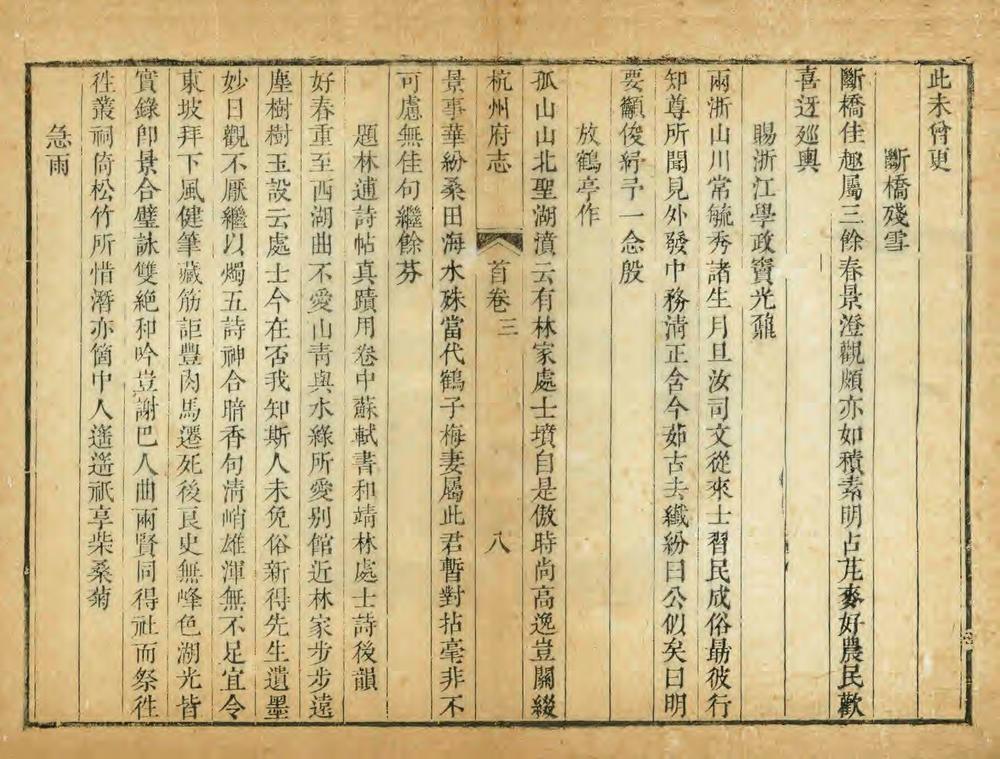 此未曾更
斷橋殘雪
斷橋佳趣屬三餘春景澄觀頗亦如積素明占芃麥好農民歡
喜迓廵輿
賜浙江學政竇光鼐
兩浙山川常毓秀諸生月旦汝司文從來士習民成俗勗彼行
知尊所聞見外發中務清正含今茹古去纖紛曰公似矣曰明
要籲俊紓予一念殷
放鶴亭作
孤山山北聖湖濆云有林家處士墳自是傲時尚高逸豈關綴
杭州府志 首卷三 八
景事華紛桑田海水硃當代鶴子梅妻屬此君暫對拈毫非不
可慮無佳句繼餘芬
題林逋詩帖真蹟用卷中蘇軾書和靖林處士詩後韻
好春重至西湖曲不愛山青與水綠所愛别館近林家步步遠
塵樹樹玉設云處士今在否我知斯人未免俗新得先生遺墨
妙日觀不厭繼以燭五詩神合暗香句清峭雄渾無不足宜令
東坡拜下風健筆藏筋詎豐肉馬遷死後良史無峰色湖光皆
實錄即景合璧詠雙絕和吟豈謝巴人曲兩賢同得社而祭徃
徃叢祠倚松竹所惜潛亦箇中人遙遙祇享柴桑菊
急雨